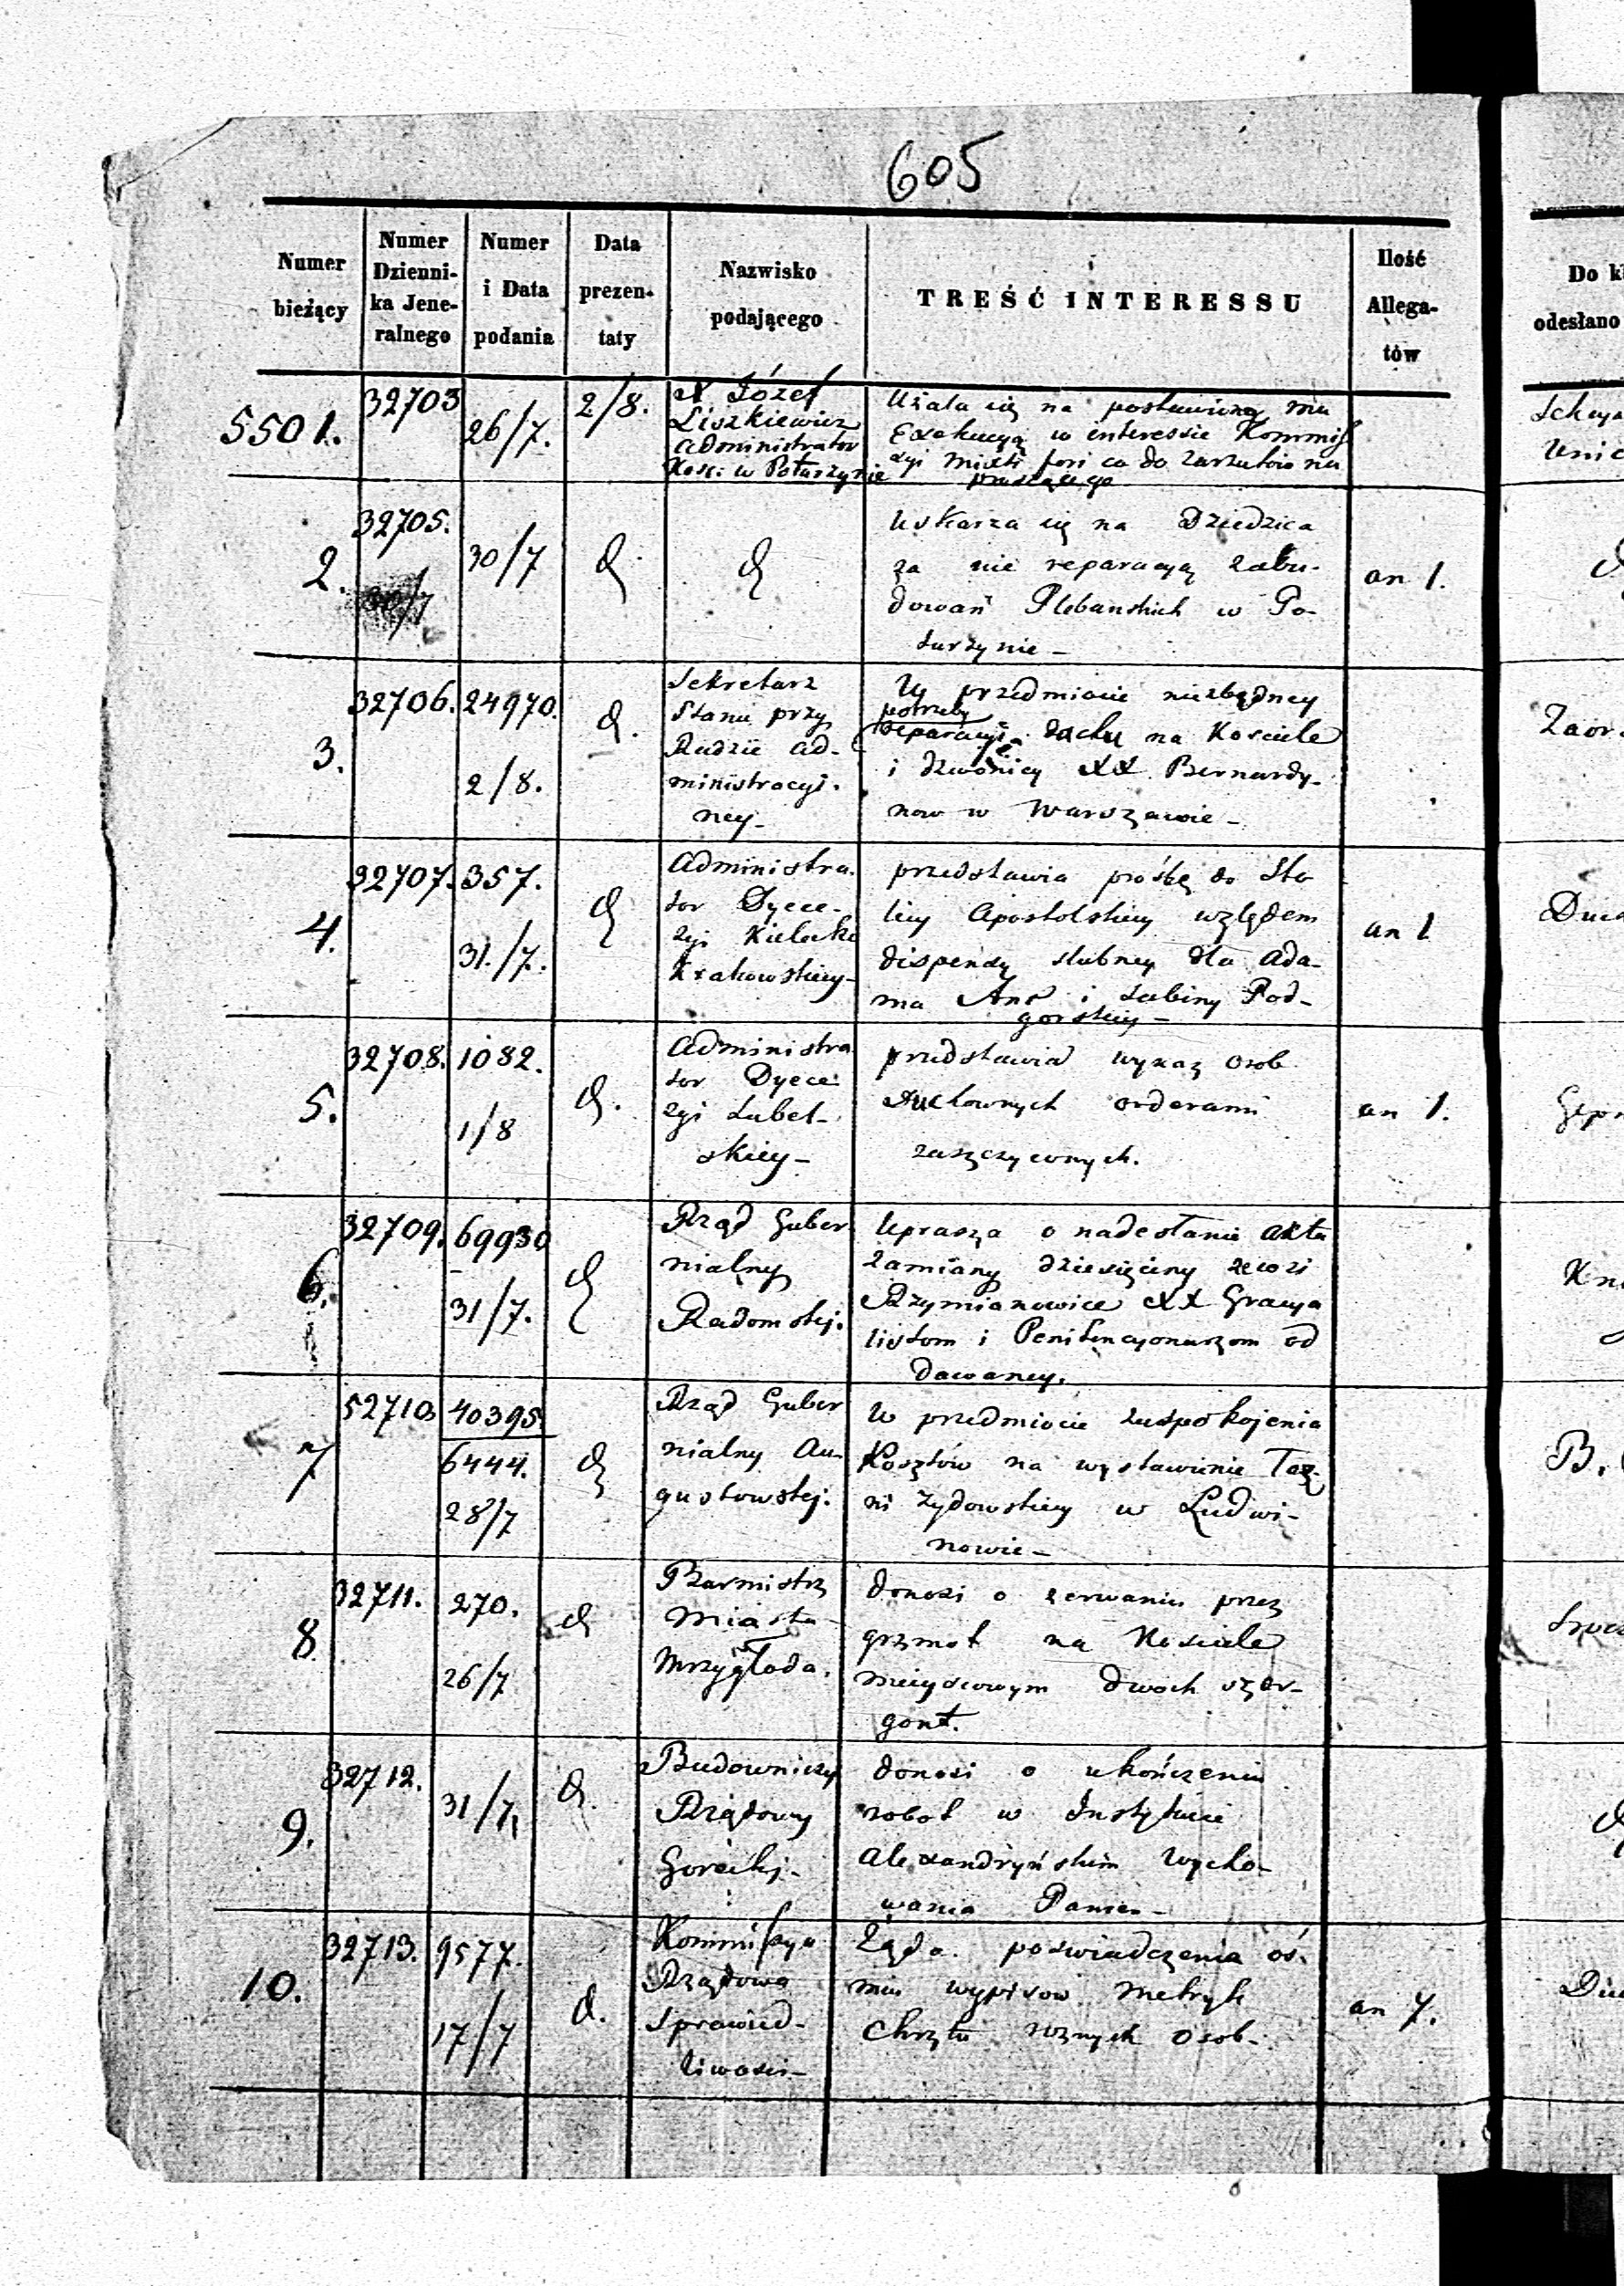 605
Numer bieżący
Numer Dzienni-ka Jene-ralnego
Numer i Data podania
Data prezen-taty
Nazwisko podającego
TREŚĆ INTERESSU
Ilość Allega-tów
Do
odesłano
5501.
32703
26/7.
2/8.
X Józef
Liszkiewicz
Administrator
Kość: w Poturzynie
Użala się na postawioną mu
Exekucyą w interessie Kommiss
cyi mixti fori co do zarzutów na
2.
32705.
30/7
30/7
d
d
Uskarza się na Dziedzica
za nie reparacyą zabu-
dowań Plebanskich w Po-
turzynie -
an 1.
3.
32706.
24970.
2/8.
d.
Sekretarz
Stanu przy
Radzie Ad-
ministracyi-
ney -
W przedmiocie niezbędney
potrzeby
reparacyi dachu na Kosciele
i dzwonicy XX. Bernardy-
now w Warszawie -
Zaor
4.
32707.
357.
31./7.
d
Administra.
tor Dyece-
zyi Kielecko
Krakowskiey -
przedstawia prośbę do Sto
licy Apostolskiey względem
dispensy slubney dla Ada-
ma i Sabiny Pod-
gorskiey -
an 1
5.
32708.
1082.
1/8
d.
Administra
tor Dyece
zyi Lubel-
skiey -
przedstawia wykaz osob
duchownych orderami
zaszczyconych.
an 1.
6.
32709.
69930
31/7.
d
Rząd Guber
nialny
Radomskij.
Uprasza o nadesłanie aktu
zamiany dziesięciny ze wsi
Rzymianowice XX Gracya
listom i Penitencyonarzom od
dawaney.
7
52710
40395
6444.
28/7
d
Rząd Guber
nialny Au-
gustowskij.
W przedmiocie zaspokojenia
Kosztów na wystawienie Łaz-
ni żydowskiey w Ludwi-
nowie -
B.
8
32711.
270.
26/7
d
Burmistrz
Miasta
Mrzygłoda.
donosi o zerwaniu przez
grzmot na Kosciele
mieyscowym dwoch szar-
gont.
9.
32712.
31/7
d.
Budowniczy
Rządowy
Górecki -
donosi o ukończeniu
robot w Instytucie
Alexandryńskim Wycho-
wania Panien -
10.
32713.
9577.
17/7
d.
Kommissya
Rządowa
Sprawied-
liwości -
Żąda poswiadczenia oś-
miu wypisow Metryk
Chrztu roznych osob -
an 7.